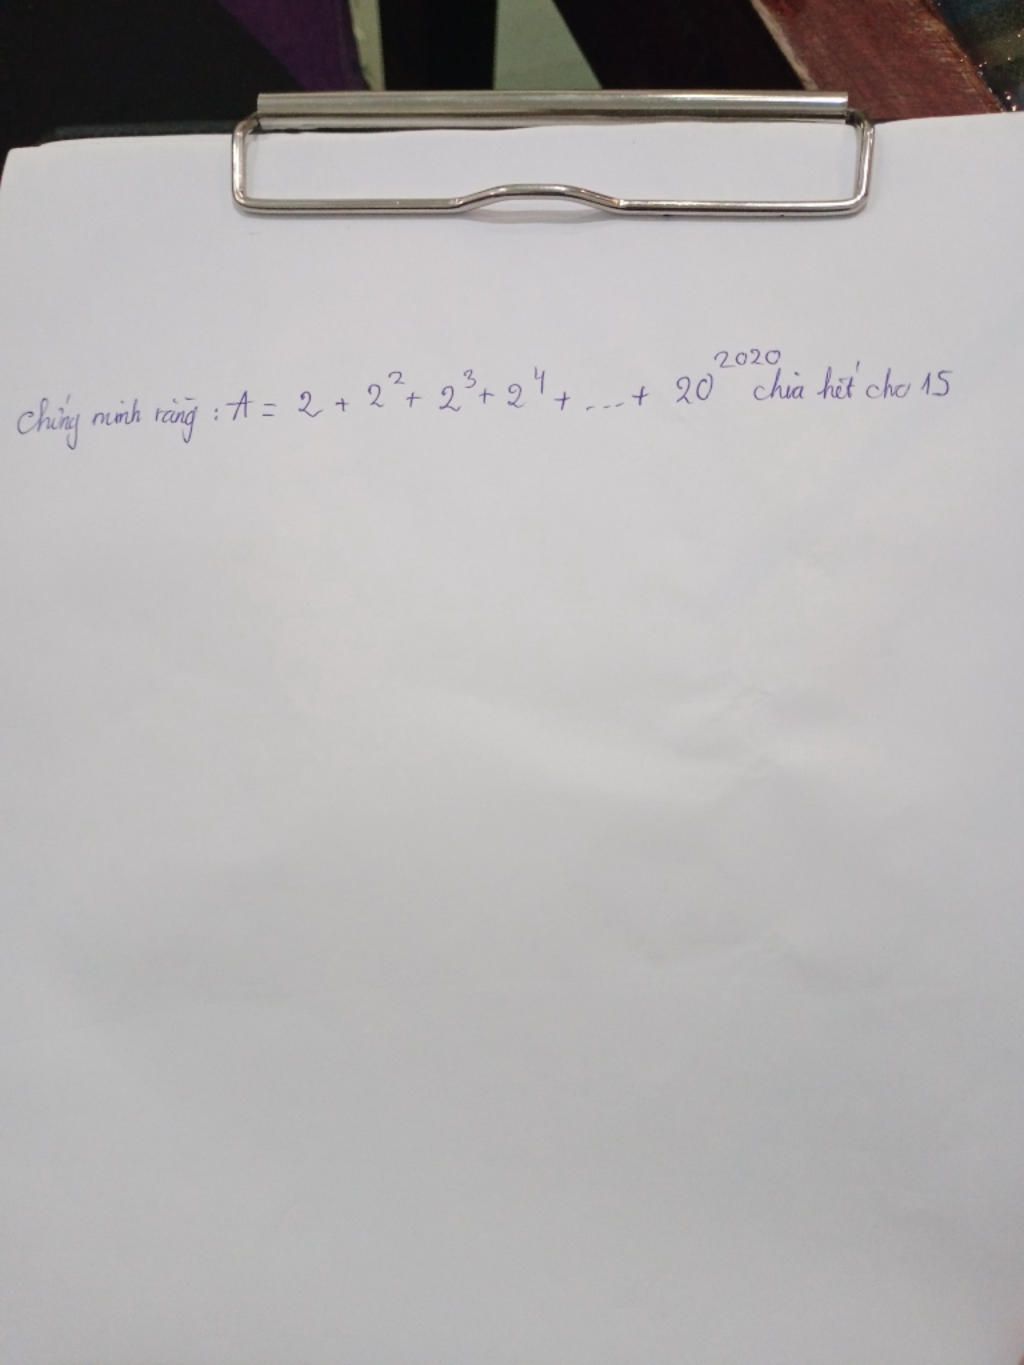 Chứng minh rằng : A = 2 + 2² + 2³ + 2⁴ + ... + 20²⁰²⁰ chia hết cho 15